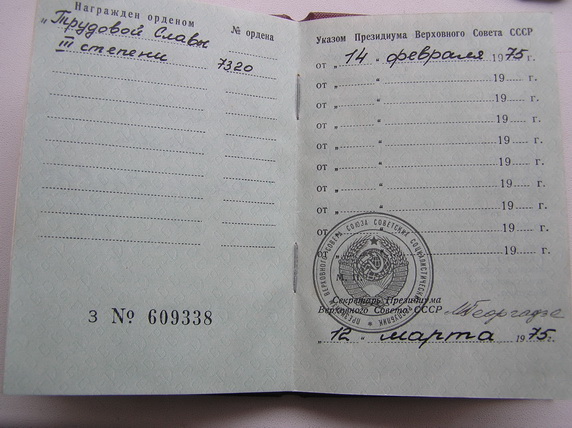 Награжден орденом
№ ордена
„Трудовой Славы
III степени
7320
З № 609338
Указом Президиума Верховного Совета СССР
от „ 14 “ февраля 1975 г.
от „ “ 19 г.
от „ “ 19 г.
от „ “ 19 г.
от „ “ 19 г.
от „ “ 19 г.
от „ “ 19 г.
от „ “ 19 г.
от „ “ 19 г.
от „ “ 19 г.
М. П.
Секретарь Президиума
Верховного Совета СССР МГеоргадзе
„ 12 “ марта 1975 г.